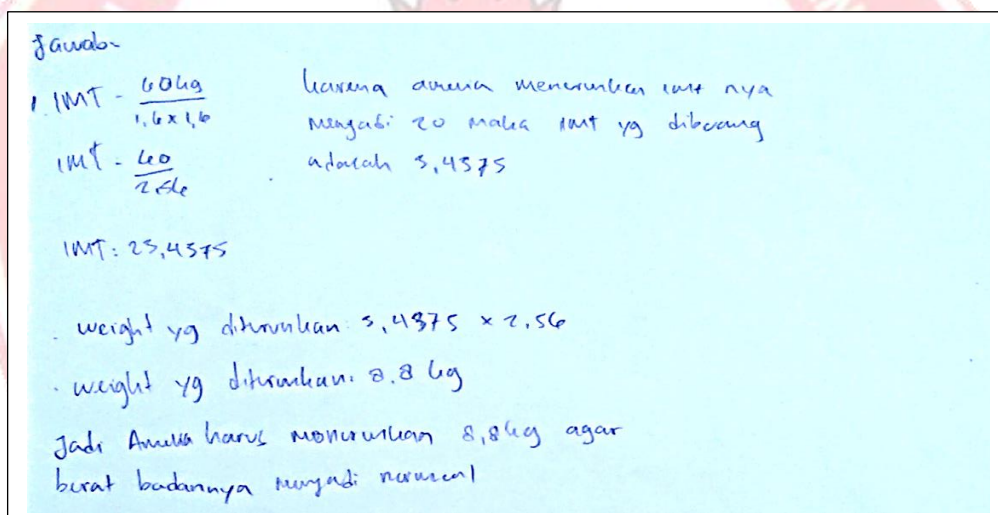 Jawab-
1. IMT - 60kg / 1,6 x 1,6
karena amelia menurunkan imt nya
menjadi 20 maka imt yg dibuang
adalah 3,4375
IMT - 60 / 2.56
IMT: 23,4375
. weight yg diturunkan: 3,4375 x 2,56
. weight yg diturunkan: 8.8 kg
Jadi Amelia harus menurunkan 8,8 kg agar
berat badannya menjadi normal